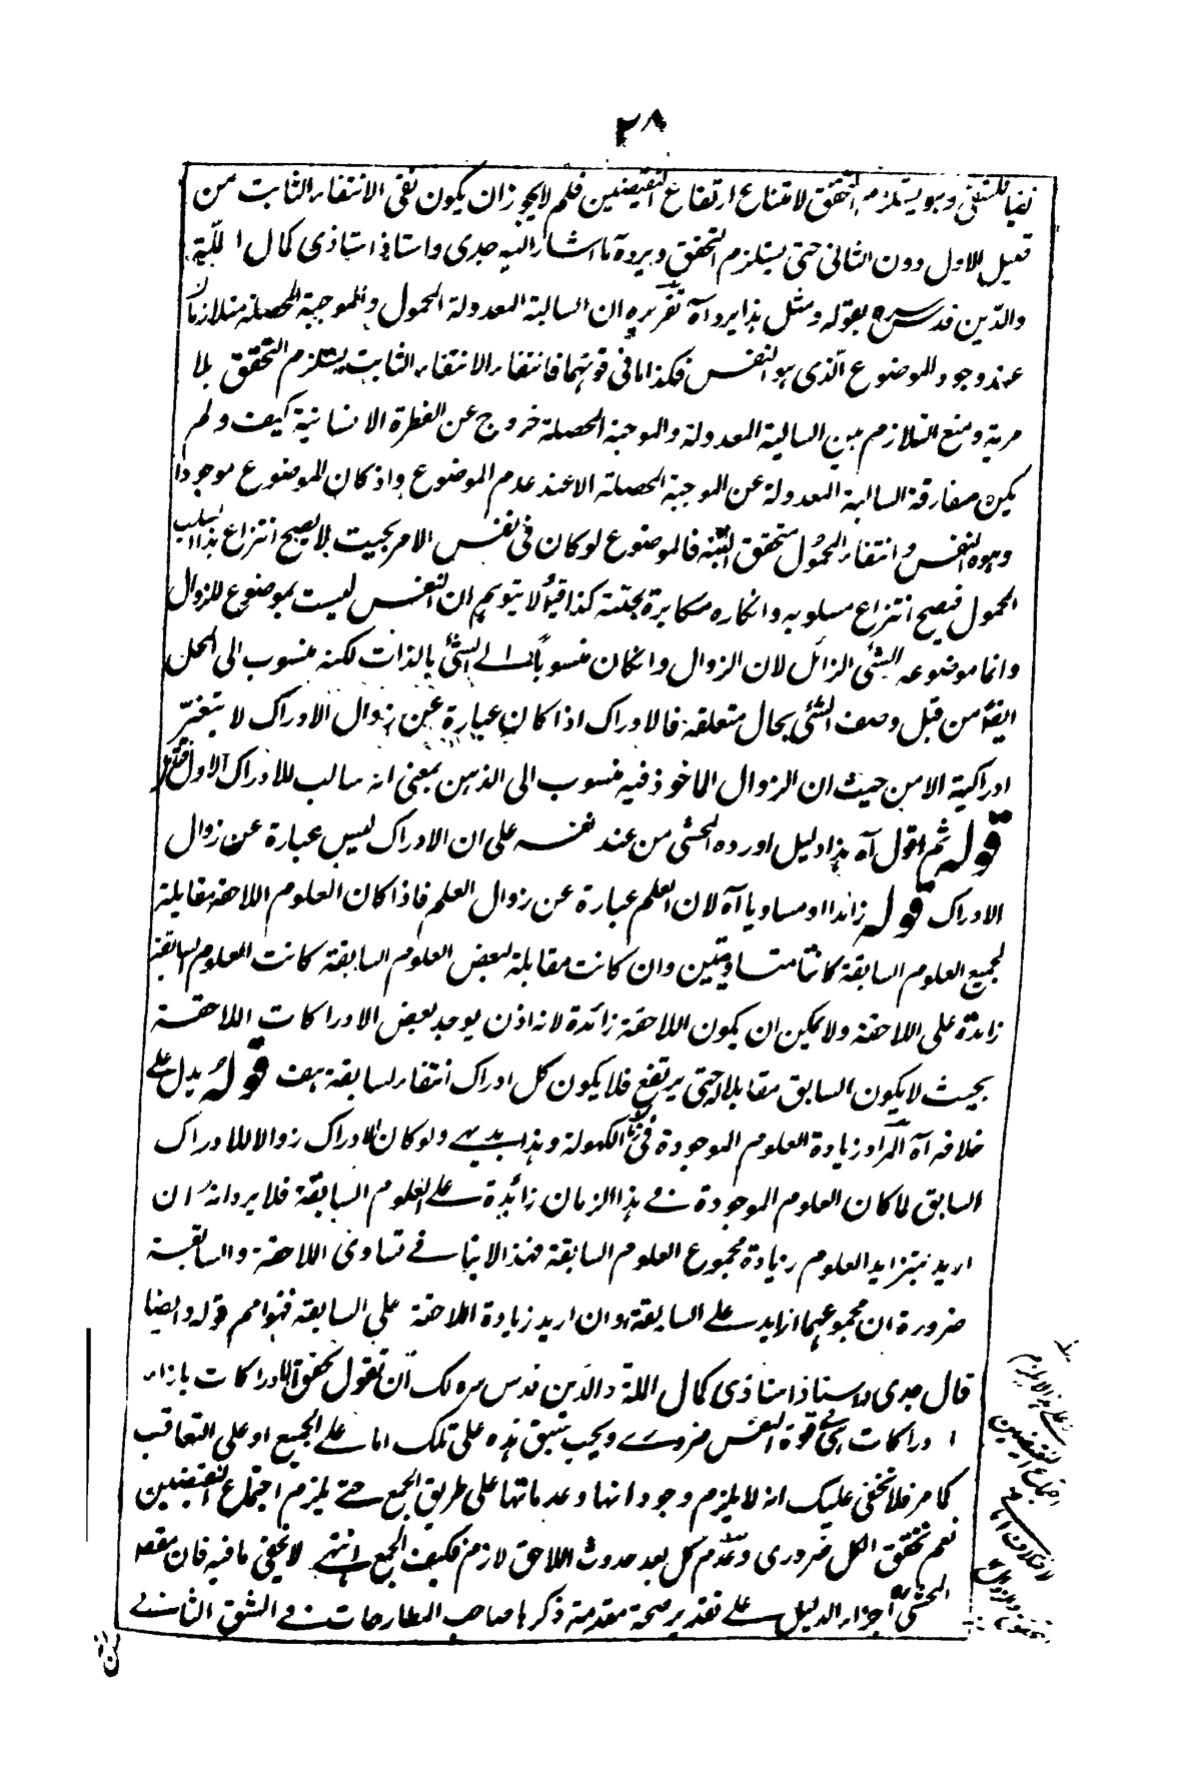 ٢٨
نفيا للمنتفى وهو يستلزم التحقق لامتناع ارتفاع النقيضين فلم لا يجوز ان يكون نفى الانتفاء الثابت من
قبيل الاول دون الثانى حتى يستلزم التحقق ويرده ما اشار اليه جدى واستاذ استاذى كمال الملة
والدين قدس سره بقوله ومثل هذا يرد آه تقريره ان السالبة المعدولة المحمول والموجبة المحصلة متلازمان
عند وجود الموضوع الذى هو النفس فكذا ما فى قوتهما فانتفاء الانتفاء الثابت يستلزم التحقق بلا
مرية ومنع التلازم بين السالبة المعدولة والموجبة المحصلة خروج عن الفطرة الانسانية كيف ولم
يكن مفارقة السالبة المعدولة عن الموجبة المحصلة الا عند عدم الموضوع واذ كان الموضوع موجودا
وهو النفس وانتفاء المحمول متحقق البتة فالموضوع لو كان فى نفس الامر بحيث لا يصح انتزاع هذا السلب
المحمول فيصح انتزاع مسلوبه وانكاره مكابرة بحتة كذا قيل ولا يتوهم ان النفس ليست بموضوع للزوال
وانما موضوعه الشئ الزائل لان الزوال وانكان منسوبا الى الشئ بالذات لكنه منسوب الى المحل
ايضا من قبل وصف الشئ بحال متعلقه فالادراك اذا كان عبارة عن زوال الادراك لا يتغير
ادراكية الا من حيث ان الزوال الماخوذ فيه منسوب الى الذهن بمعنى انه سالب للادراك الاول
قوله ثم اقول آه هذا دليل اورده المحشى من عند نفسه على ان الادراك ليس عبارة عن زوال
الادراك قوله زائدا او مساويا آه لان العلم عبارة عن زوال العلم فاذا كان العلوم اللاحقة مقابلة
لجميع العلوم السابقة كانتا متساويتين وان كانت مقابلة لبعض العلوم السابقة كانت العلوم السابقة
زائدة على اللاحقة ولا يمكن ان يكون اللاحقة زائدة لانه اذن يوجد بعض الادراكات اللاحقة
بحيث لا يكون السابق مقابلا له حتى يرتفع فلا يكون كل ادراك انتفاء لسابقة هف قوله يدل على
خلافه آه المراد زيادة العلوم الموجودة فى الكهولة وهذا بديهى ولو كان الادراك زوالا للادراك
السابق لما كان العلوم الموجودة فى هذا الزمان زائدة على العلوم السابقة فلا يرد انه ان
اريد بتزايد العلوم زيادة مجموع العلوم السابقة فهذا لا ينافى تساوى اللاحقة والسابقة
ضرورة ان مجموعهما ازيد على السابقة وان اريد زيادة اللاحقة على السابقة فهو امم قوله وايضا
قال جدى واستاذ استاذى كمال الملة والدين قدس سره لك ان تقول تحقق الادراكات بازاء
ادراكات فى قوة النفس ضرورى ويجب سبق هذه على تلك اما على الجميع او على التعاقب
كما مر فلا تخفى عليك انه لا يلزم وجوداتها وعدماتها على طريق الجمع حتى يلزم اجتماع النقيضين
نعم تحقق الكل ضرورى وعدم كل بعد حدوث اللاحق لازم فكيف الجمع انتهى لا يخفى ما فيه فان مقصود
المحشى اجراء الدليل على تقدير صحة مقدمة ذكرها صاحب المطارحات فى الشق الثانى
اجتماع النقيضين